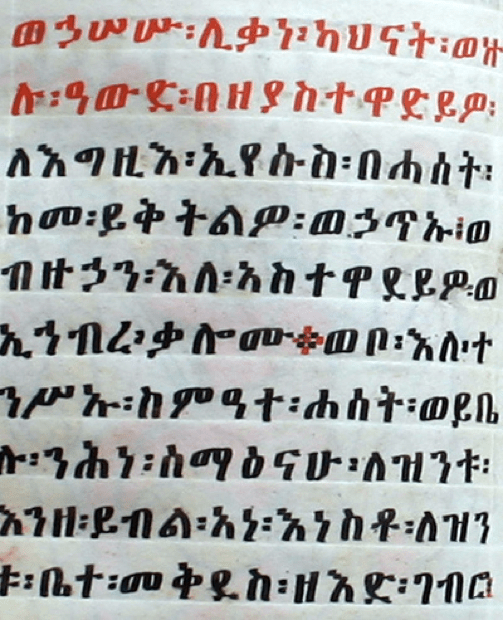 ወኃሠሡ፡ሊቃነ፡ካህናት፡ወዙ
ሉ፡ዓውድ፡በዘያስተዋድይዎ፡
ለእግዚእ፡ኢየሱስ፡በሐሰት፡
ከመ፡ይቅትልዎ፡ወኃጥኡ፡ወ
ብዙኃን፡እለ፡አስተዋደይዎ፡ወ
ኢኀብረ፡ቃሎሙ፨ወቦ፡እለ፡ተ
ንሥኡ፡ስምዓተ፡ሐሰት፡ወይቤ
ሉ፡ንሕነ፡ሰማዕናሁ፡ለዝንቱ፡
እንዘ፡ይብል፡አነ፡እነስቶ፡ለዝን
ቱ፡ቤተ፡መቅደስ፡ዘእድ፡ገብሮ